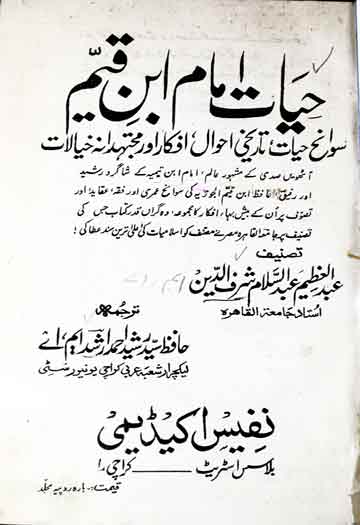 حیات امام ابن قیّم
سوانح حیات، تاریخی احوال، افکار اور مجتہدانہ خیالات
آٹھویں صدی کے مشہور عالم، امام ابن تیمیہ کے شاگرد رشید
اور رفیق، حافظ ابن قیّم الجوزیہ کی سوانح عمری اور فقہ، عقاید، اور
تصوف پر ان کے بیش بہا، افکار کا مجموعہ، وہ گراں قدر کتاب جس کی
تصنیف پر جامعۃ القاہرہ مصر نے مصنف کو اسلامیات کی اعلیٰ ترین سند عطا کی؛
تصنیف
عبدالعظیم عبدالسلام شرف الدین
استاد جامعۃ القاھرہ
ترجمہ
حافظ سیّد رشید احمد ارشد ایم، اے
لیکچرار شعبۂ عربی کراچی یونیورسٹی
نفیس اکیڈیمی
بلاسس اسٹریٹ ـــــ کراچی ۱
قیمت:۔ بارہ روپیہ مجلّد